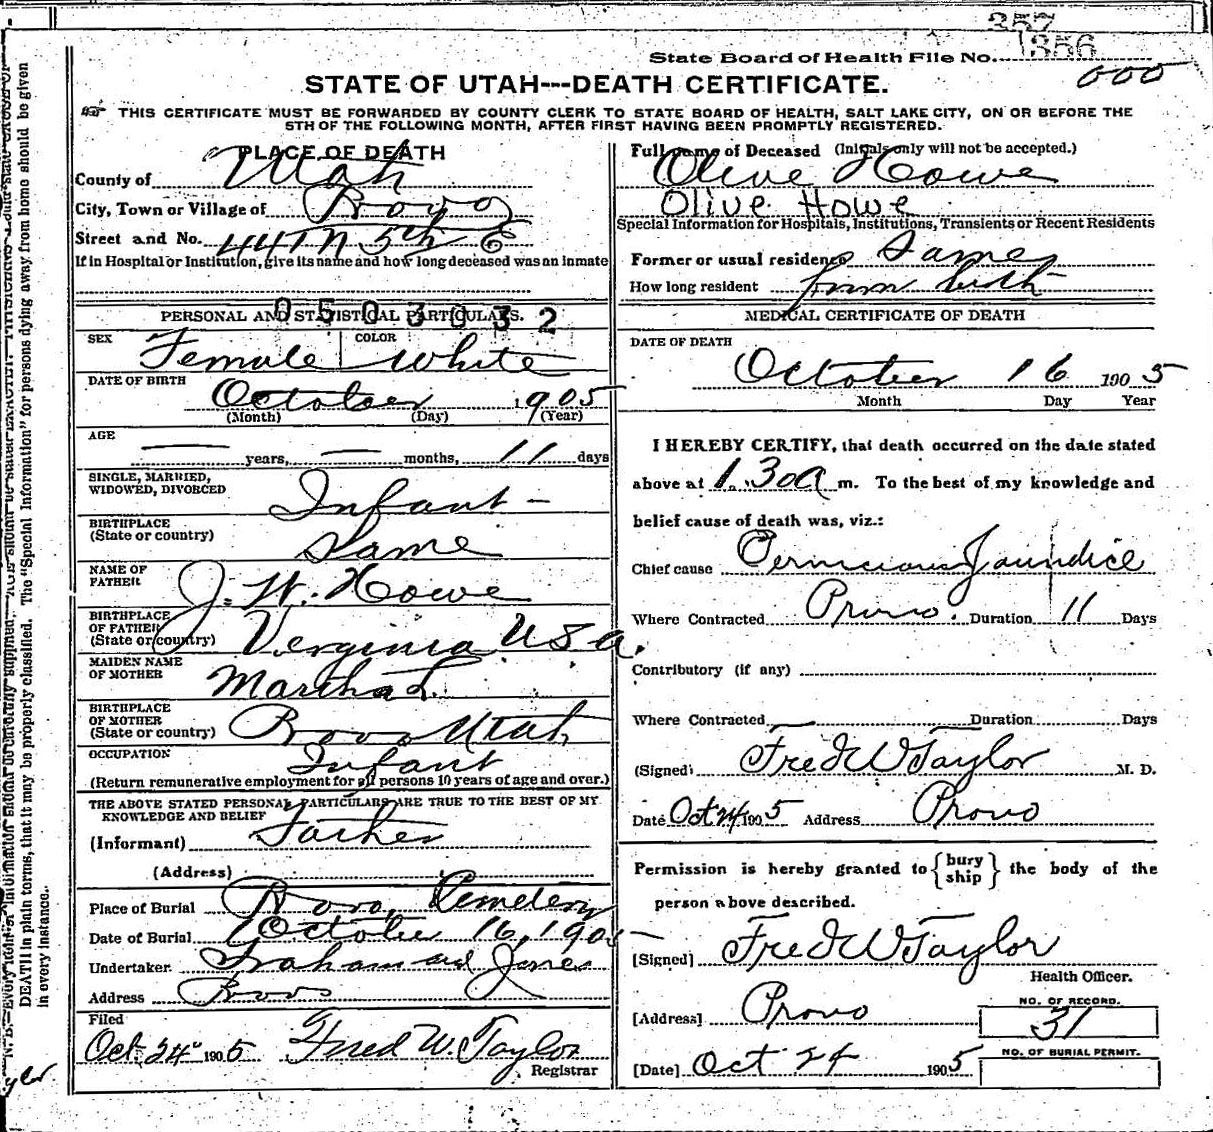 357
1356
State Board of Health File No.
000
STATE OF UTAH---DEATH CERTIFICATE.
THIS CERTIFICATE MUST BE FORWARDED BY COUNTY CLERK TO STATE BOARD OF HEALTH, SALT LAKE CITY, ON OR BEFORE THE
5TH OF THE FOLLOWING MONTH, AFTER FIRST HAVING BEEN PROMPTLY REGISTERED.
PLACE OF DEATH
County of Utah
City, Town or Village of Provo
Street and No. 441 N 5th E
If in Hospital or Institution, give its name and how long deceased was an inmate
0503032
PERSONAL AND STATISTICAL PARTICULARS.
SEX Female COLOR White
DATE OF BIRTH
October 1905
(Month) (Day) (Year)
AGE
years, months, 11 days
SINGLE, MARRIED,
WIDOWED, DIVORCED Infant -
BIRTHPLACE
(State or country) Same
NAME OF
FATHER J. W. Howe
BIRTHPLACE
OF FATHER
(State or country) Verginia USA.
MAIDEN NAME
OF MOTHER Martha L.
BIRTHPLACE
OF MOTHER
(State or country) Provo Utah
OCCUPATION Infant
(Return remunerative employment for all persons 10 years of age and over.)
THE ABOVE STATED PERSONAL PARTICULARS ARE TRUE TO THE BEST OF MY
KNOWLEDGE AND BELIEF
(Informant) Father
(Address)
Place of Burial Provo Cemetery
Date of Burial October 16, 1905
Undertaker Graham and Jones
Address Provo
Filed
Oct 24 1905 Fred W. Taylor
Registrar
Full name of Deceased (Initials only will not be accepted.)
Olive Howe
Olive Howe
Special Information for Hospitals, Institutions, Transients or Recent Residents
Former or usual residence Same
How long resident from birth
MEDICAL CERTIFICATE OF DEATH
DATE OF DEATH
October 16 1905
Month Day Year
I HEREBY CERTIFY, that death occurred on the date stated
above at 1.30 a m. To the best of my knowledge and
belief cause of death was, viz.:
Chief cause Pernicious Jaundice
Where Contracted Provo. Duration 11 Days
Contributory (if any)
Where Contracted Duration Days
(Signed) Fred W Taylor M. D.
Date Oct 24 1905 Address Provo
Permission is hereby granted to {bury ship} the body of the
person above described.
[Signed] Fred W Taylor
Health Officer.
[Address] Provo
NO. OF RECORD.
31
[Date] Oct 24 1905
NO. OF BURIAL PERMIT.
DEATH in plain terms, that it may be properly classified. The "Special Information" for persons dying away from home should be given
in every instance.